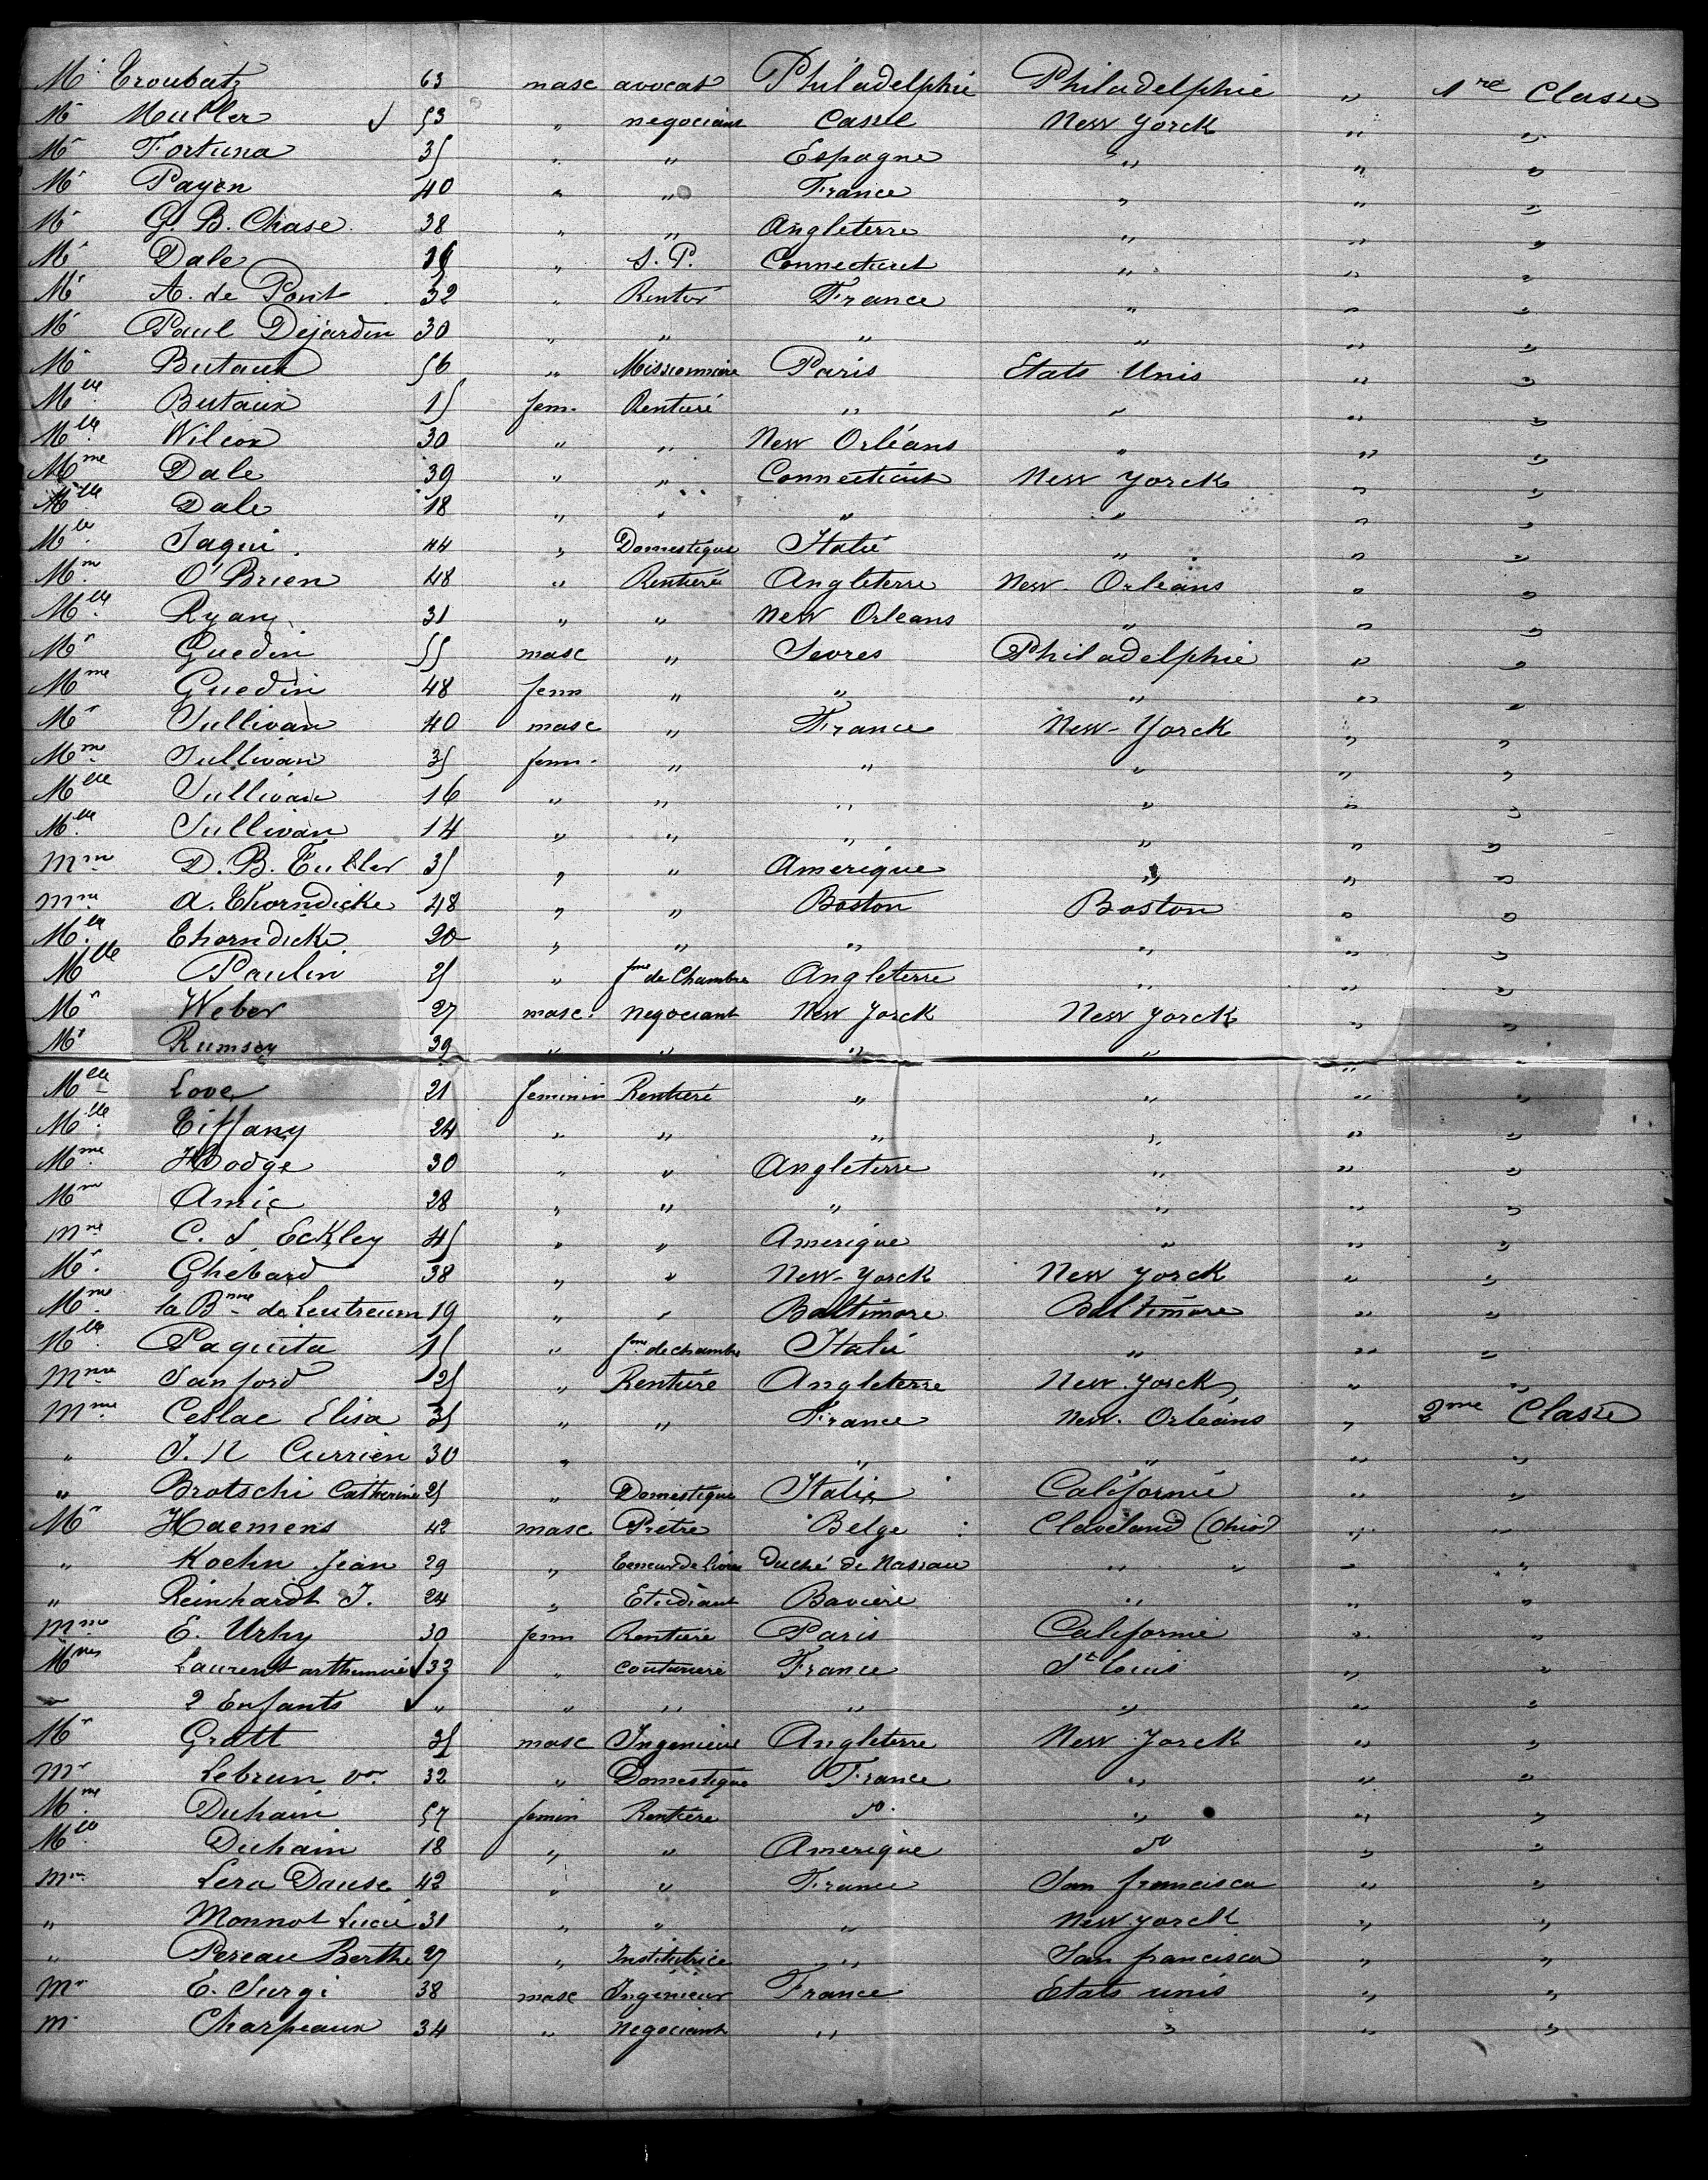 Mr Troubat 63 masc avocat Philadelphie Philadelphie " 1re Classe
Mr Muller 53 " negociant Cassel New Yorck " "
Mr Fortuna 35 " " Espagne " " "
Mr Payen 40 " " France " " "
Mr G. B. Chase 38 " " Angleterre " " "
Mr Dale " S. P. Connecticut " " "
Mr A. de Pont 32 " Rentier France " " "
Mr Paul Dejardin 30 " " " " " "
Mr Butaux 56 " Missionnaire Paris Etats Unis " "
Mlle Butaux 15 fem. Rentiere " " " "
Mlle Wilcox 30 " " New Orléans " " "
Mme Dale 39 " " Connecticut New Yorck " "
Mlle Dale 18 " " " " " "
Mlle Saqui 44 " Domestique Italie " " "
Mme O'Brien 48 " Rentiere Angleterre New Orleans " "
Mlle Ryan 31 " " New Orleans " " "
Mr Guedin 55 masc " Sevres Philadelphie " "
Mme Guedin 48 fem " " " " "
Mr Sullivan 40 masc " France New-Yorck " "
Mme Sullivan 35 fem. " " " " "
Mlle Sullivan 16 " " " " " "
Mlle Sullivan 14 " " " " " "
Mme D. B. Tuller 35 " " Amerique " " "
Mme A. Thorndicke 48 " " Boston Boston " "
Mlle Thorndicke 20 " " " " " "
Mlle Paulin 25 " fme de Chambre Angleterre " " "
Mr Weber 27 masc. negociant New Yorck New Yorck " "
Mr Rumsey 39 " " " " " "
Mlle Love 21 feminin Rentiere " " " "
Mlle Tiffany 24 " " " " " "
Mme Hodge 30 " " Angleterre " " "
Mme Amic 28 " " " " " "
Mme C. S Eckley 45 " " Amerique " " "
Mr Ghebard 38 " " New-Yorck New Yorck " "
Mme la Bnne de Leutreum 19 " " Baltimore Baltimore " "
Mlle Paquita 15 " fme de chambre Italie " " "
Mme Sanford 25 " Rentiére Angleterre New Yorck " "
Mme Ceslac Elisa 35 " " France New-Orléans " 2me Classe
" J. N Currien 30 " " " " "
" Brotschi Catherine 25 " Domestique Italie Californie " "
Mr Haemens 42 masc Prêtre Belge Cleveland (Ohio) " "
" Koehn Jean 29 " Teneur de Livres Duché de Nassau " " " "
" Reinhardt J. 24 " Etudiant Baviere " " "
Mme E. Urhy 30 fem Rentiere Paris Californie " "
Mmes Laurent 33 " couturiere France St Louis " "
2 Enfants " " " " " " "
Mr Gratt 35 masc Ingenieur Angleterre New Yorck " "
Mr Lebrun Vor 32 " Domestique France " " "
Mme Duhain 57 femin Rentiere do " " "
Mlle Duhain 18 " " Amerique do " "
Mme Lera Dause 42 " " France San francisco " "
" Monnot Lucie 31 " " " New yorck " "
" Pereau Berthe 27 " Institutrice " San francisco " "
Mr E. Surgi 38 masc Ingénieur France Etats unis " "
Mr Charpeaux 34 " négociant " " " "